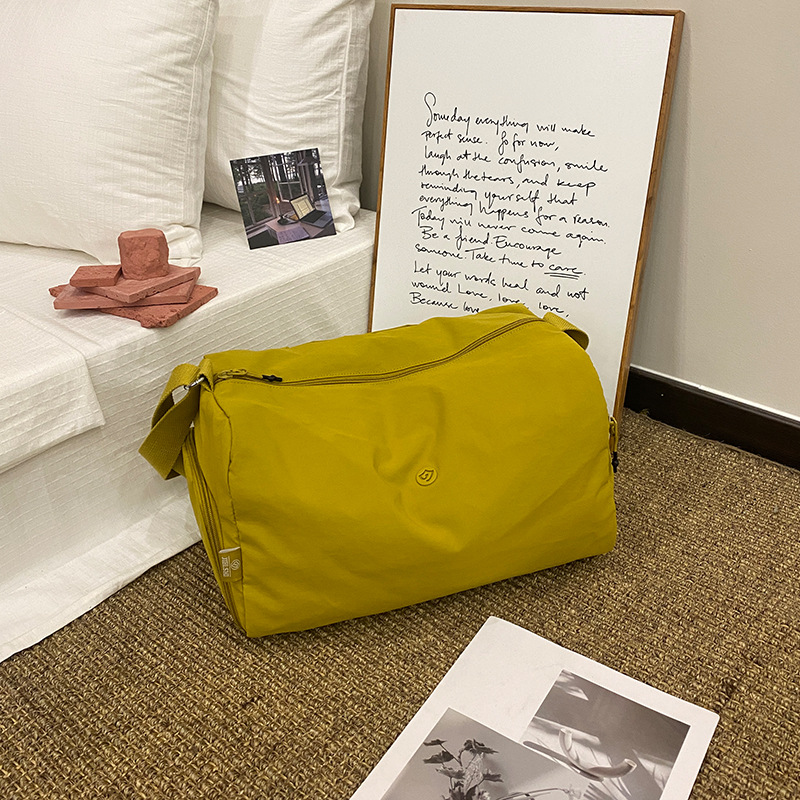 Someday everything will make
perfect sense. So for now,
laugh at the confusion, smile
through the tears, and keep
reminding yourself that
everything happens for a reason.
Today will never come again.
Be a friend. Encourage
someone. Take time to care
Let your words heal and not
wound. Love, love, love,
Because love